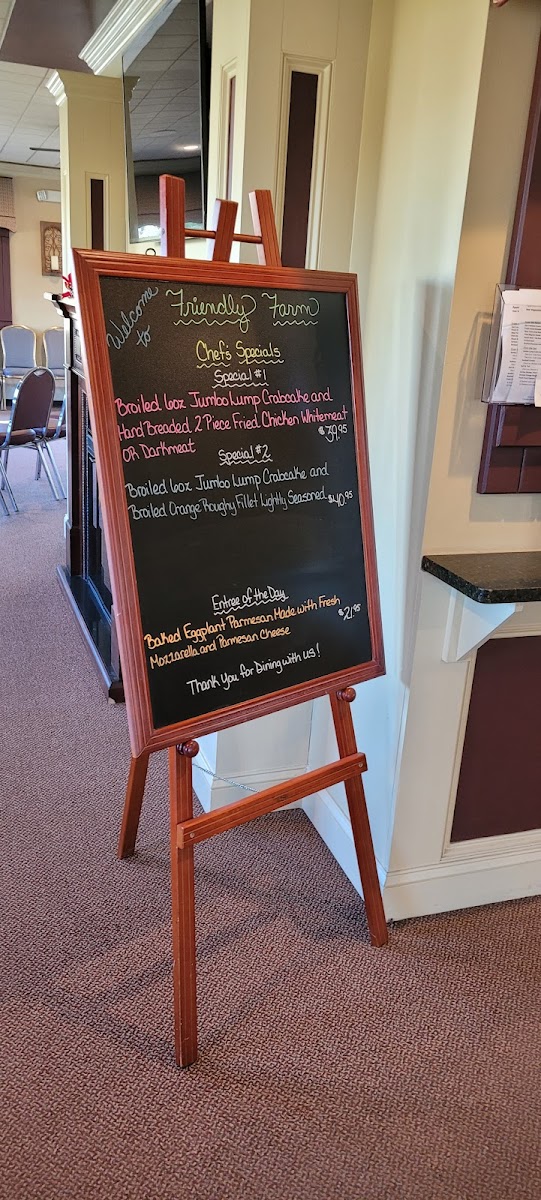 Welcome
to
Friendly Farm
Chef's Specials
Special #1
Broiled 6oz Jumbo Lump Crabcake and
Hand Breaded 2 Piece Fried Chicken Whitemeat
OR Darkmeat $39.95
Special #2
Broiled 6oz Jumbo Lump Crabcake and
Broiled Orange Roughy Fillet Lightly Seasoned $40.95
Entree of the Day
Baked Eggplant Parmesan Made with Fresh
Mozzarella and Parmesan Cheese $21.95
Thank you for Dining with us!